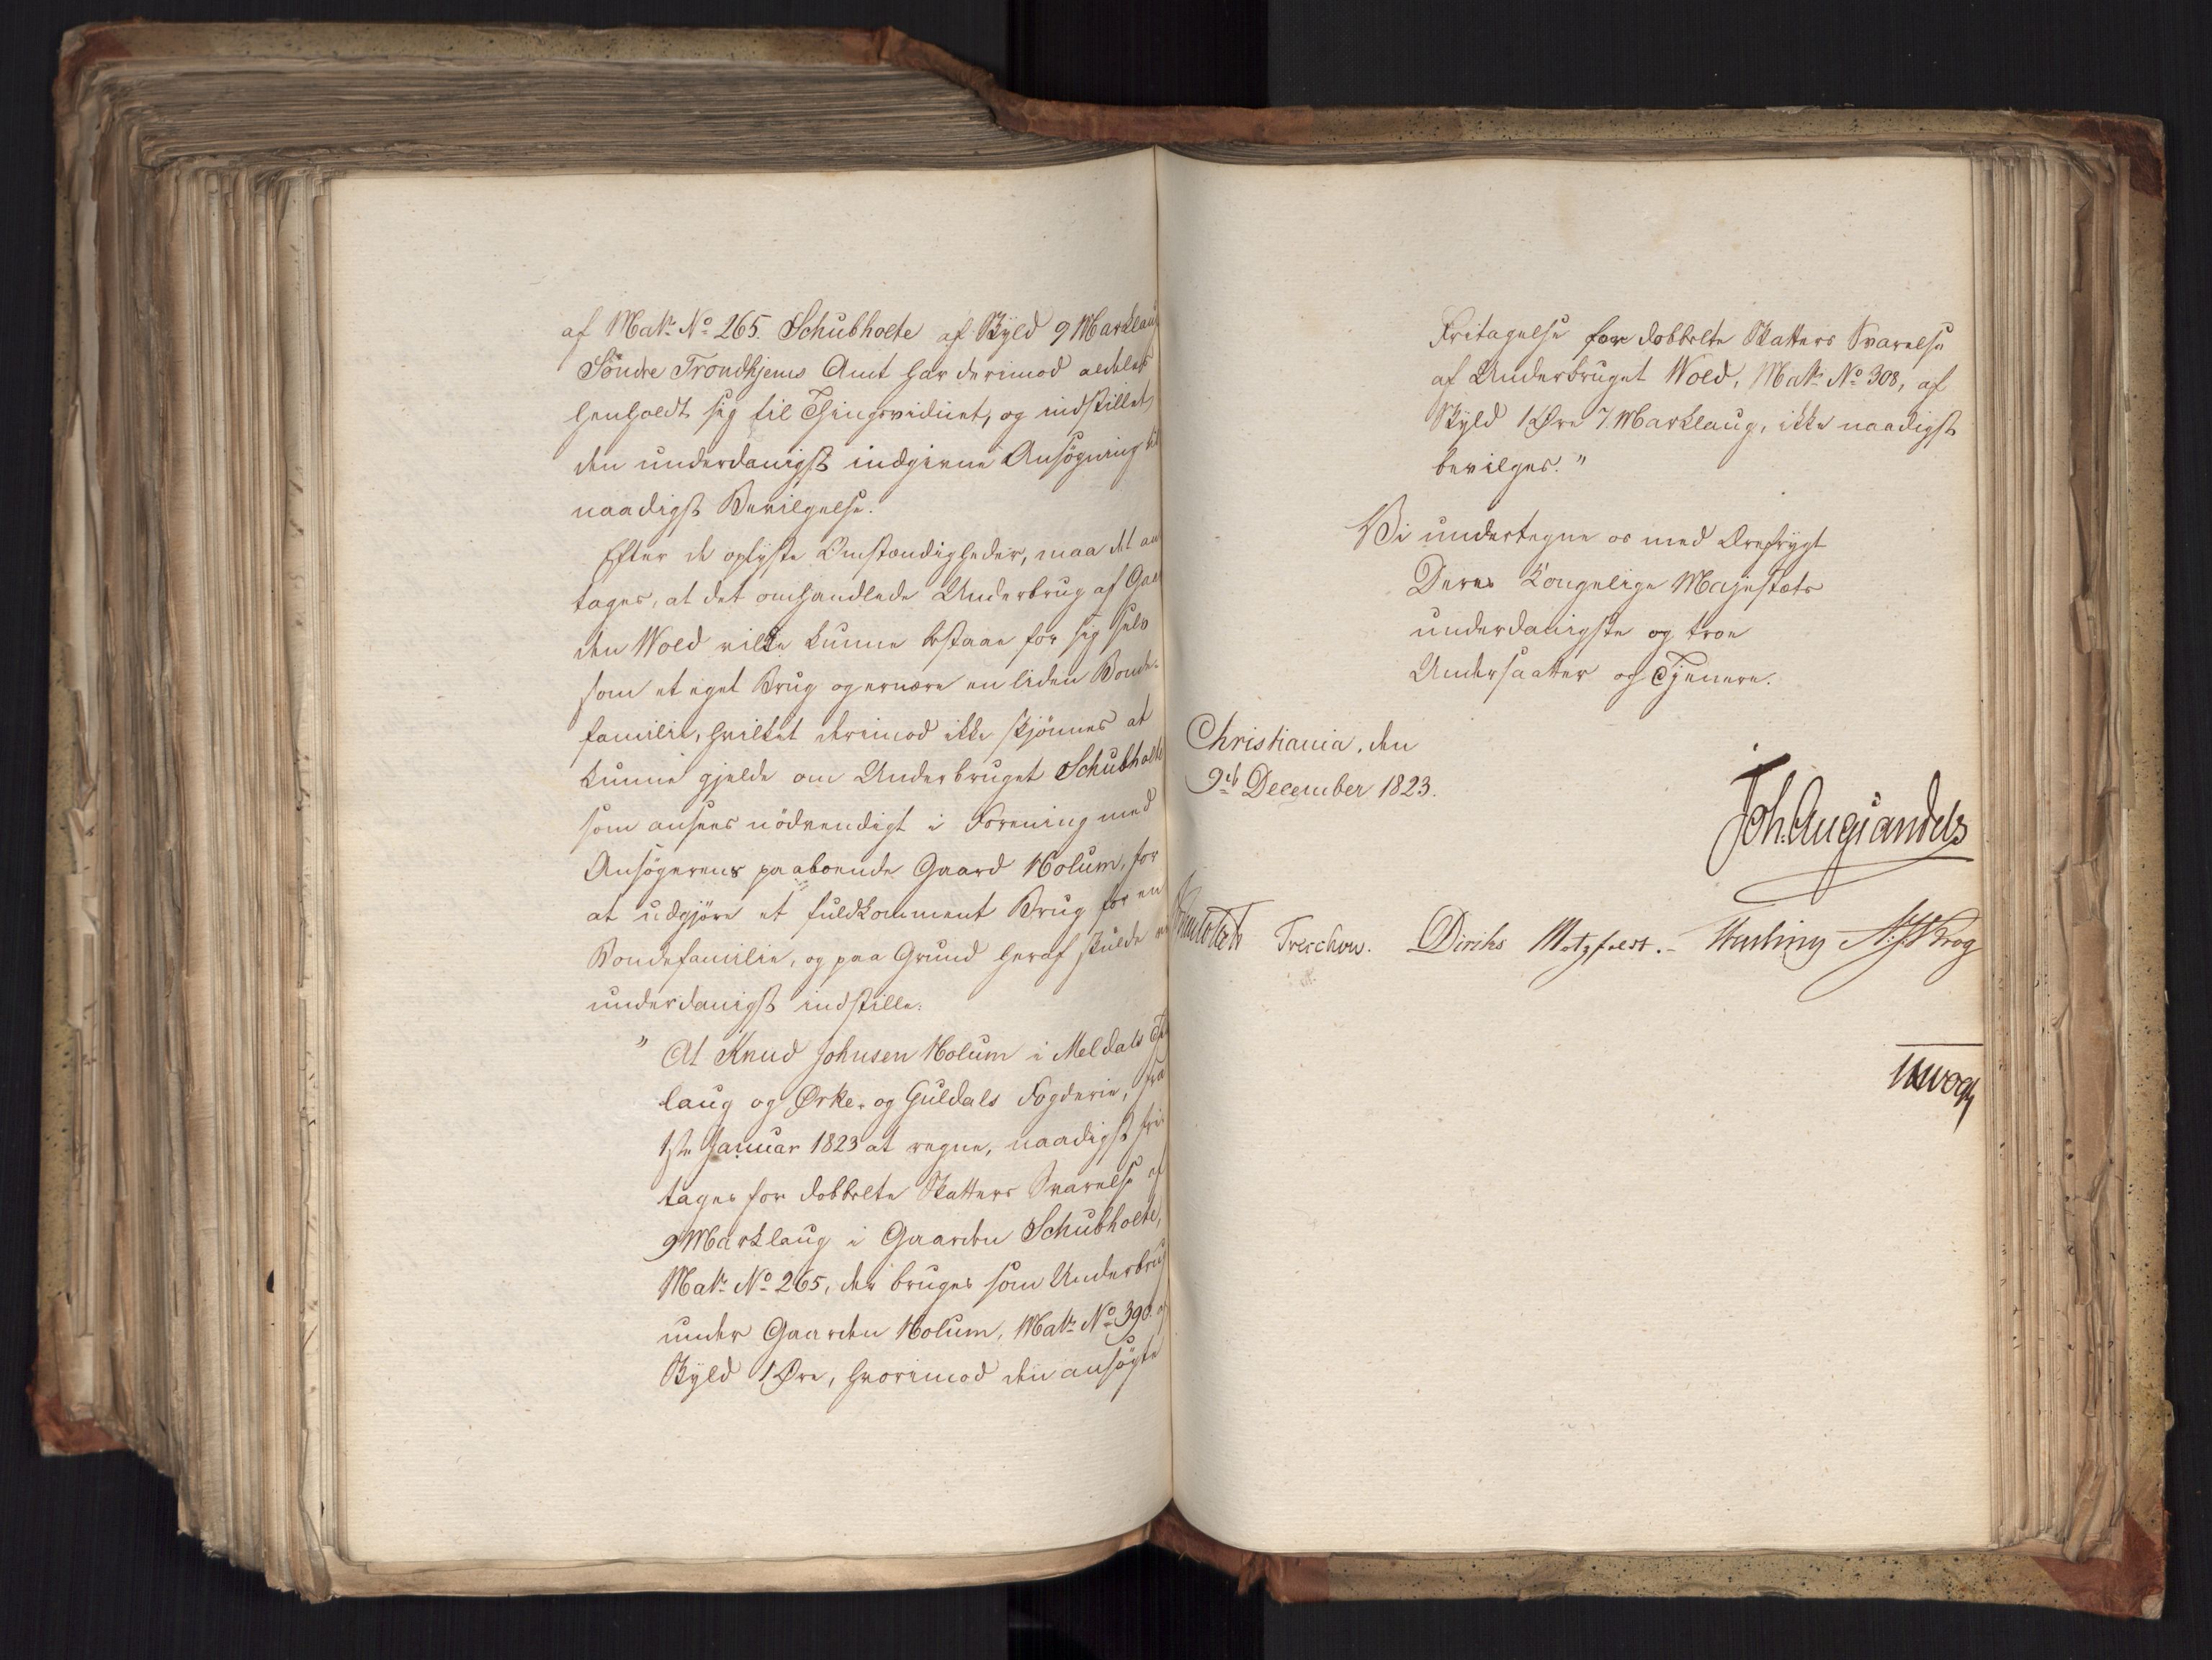 af Matr: No 265. Schubholte af Skyld 9 Marklaug
Söndre Trondhjems Amt har derimod aldeles
henholdt sig til Thingsvidnet, og indstillet
den underdanigst indgivne Ansøgning til
naadigst Bevilgelse.
Efter de oplyste Omstændigheder, maa det an
tages, at det omhandlede Underbrug af Gaar
den Wold vilde kunne bestaae for sig selv
som et eget Brug og ernære en liden Bonde-
familie, hvilket derimod ikke skjönnes at
kunne gjelde om Underbruget Schubholte
som ansees nödvendigt i Forening med
Ansögerens paaboende Gaard Holum, for
at udgjöre et fuldkomment Brug for en
Bondefamilie, og paa Grund heraf skulde
underdanigst indstille:
" At Knud Johnsen Holum i Meldals
laug og Ørke- og Guldals Fogderie, fra
1ste Januar 1823 at regne, naadigst fri-
tages for dobbelte Skatters Svarelse af
9 Marklaug i Gaarden Schubholte,
Matr: No 265, der bruges som Underbrug
under Gaarden Holum, Matr: No 390. af
Skyld 1 Øre, hvorimod den ansögte
Fritagelse for dobbelte Skatters Svarelse
af Underbruget Wold, Matr: No 308, af
Skyld 1 Øre 7 Marklaug, ikke naadigst
bevilges."
Vi undertegne os med Ærefrygt
Deres Kongelige Majestæts
underdanigste og troe
Undersaatter og Tjenere.
Christiania, den
9de December 1823.
Joh. Aug. Sandels
Treschow. Diriks Motzfeldt. Krog